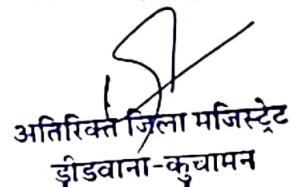 अतिरिक्त जिला मजिस्ट्रेट
डीडवाना-कुचामन